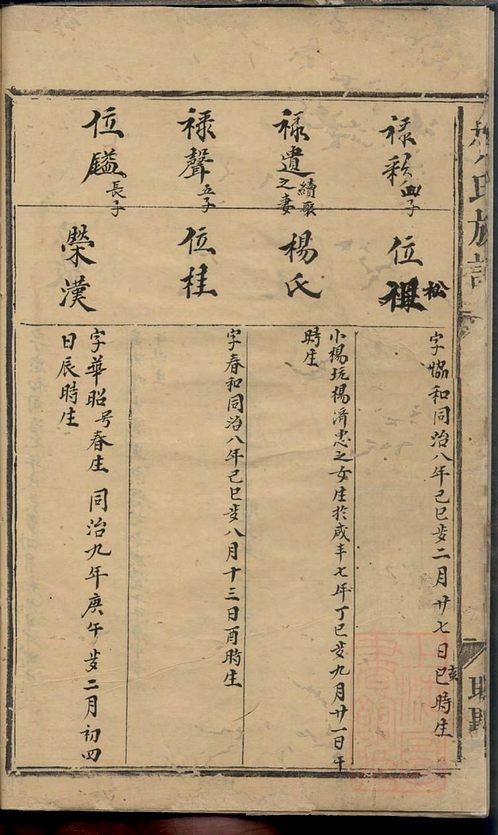 祿彩四子
位松
字協和同治八年己巳岁二月廿七日亥時生
祿遺續娶之妻
楊氏
小楊坑楊濟忠之女生於咸丰七年丁巳岁九月廿一日午
時生
祿聲五子
位桂
字春和同治八年己巳岁八月十三日酉時生
位鎰長子
榮漢
字華昭号春生 同治九年庚午岁二月初四
日辰時生
氏族譜